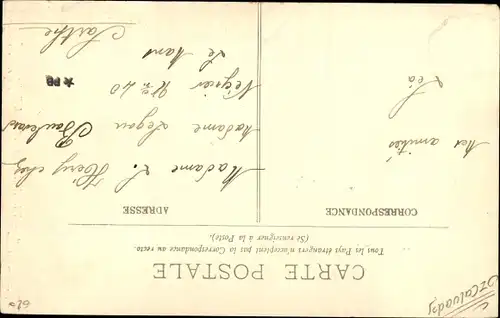 CARTE POSTALE
Tous les Pays étrangers n'acceptent pas la Correspondance au recto.
(Se renseigner à la Poste).
CORRESPONDANCE
ADRESSE
Mes amitiés
Léa
Madame L.
Héry chez
Madame Legau
Boulevard
Négrier No 40
Le Mans
Sarthe
PB
CALVADOS